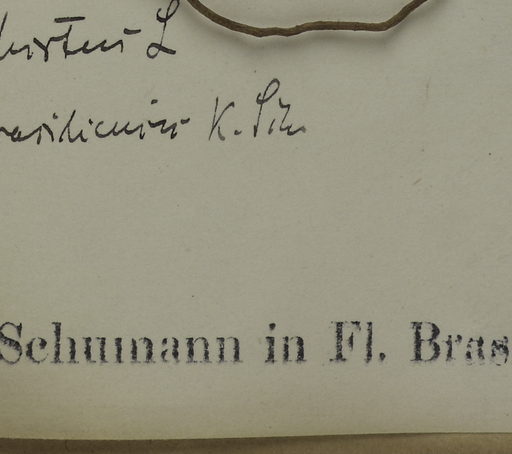 hirtus L
brasilicensis K. Sch
Schumann in Fl. Bras